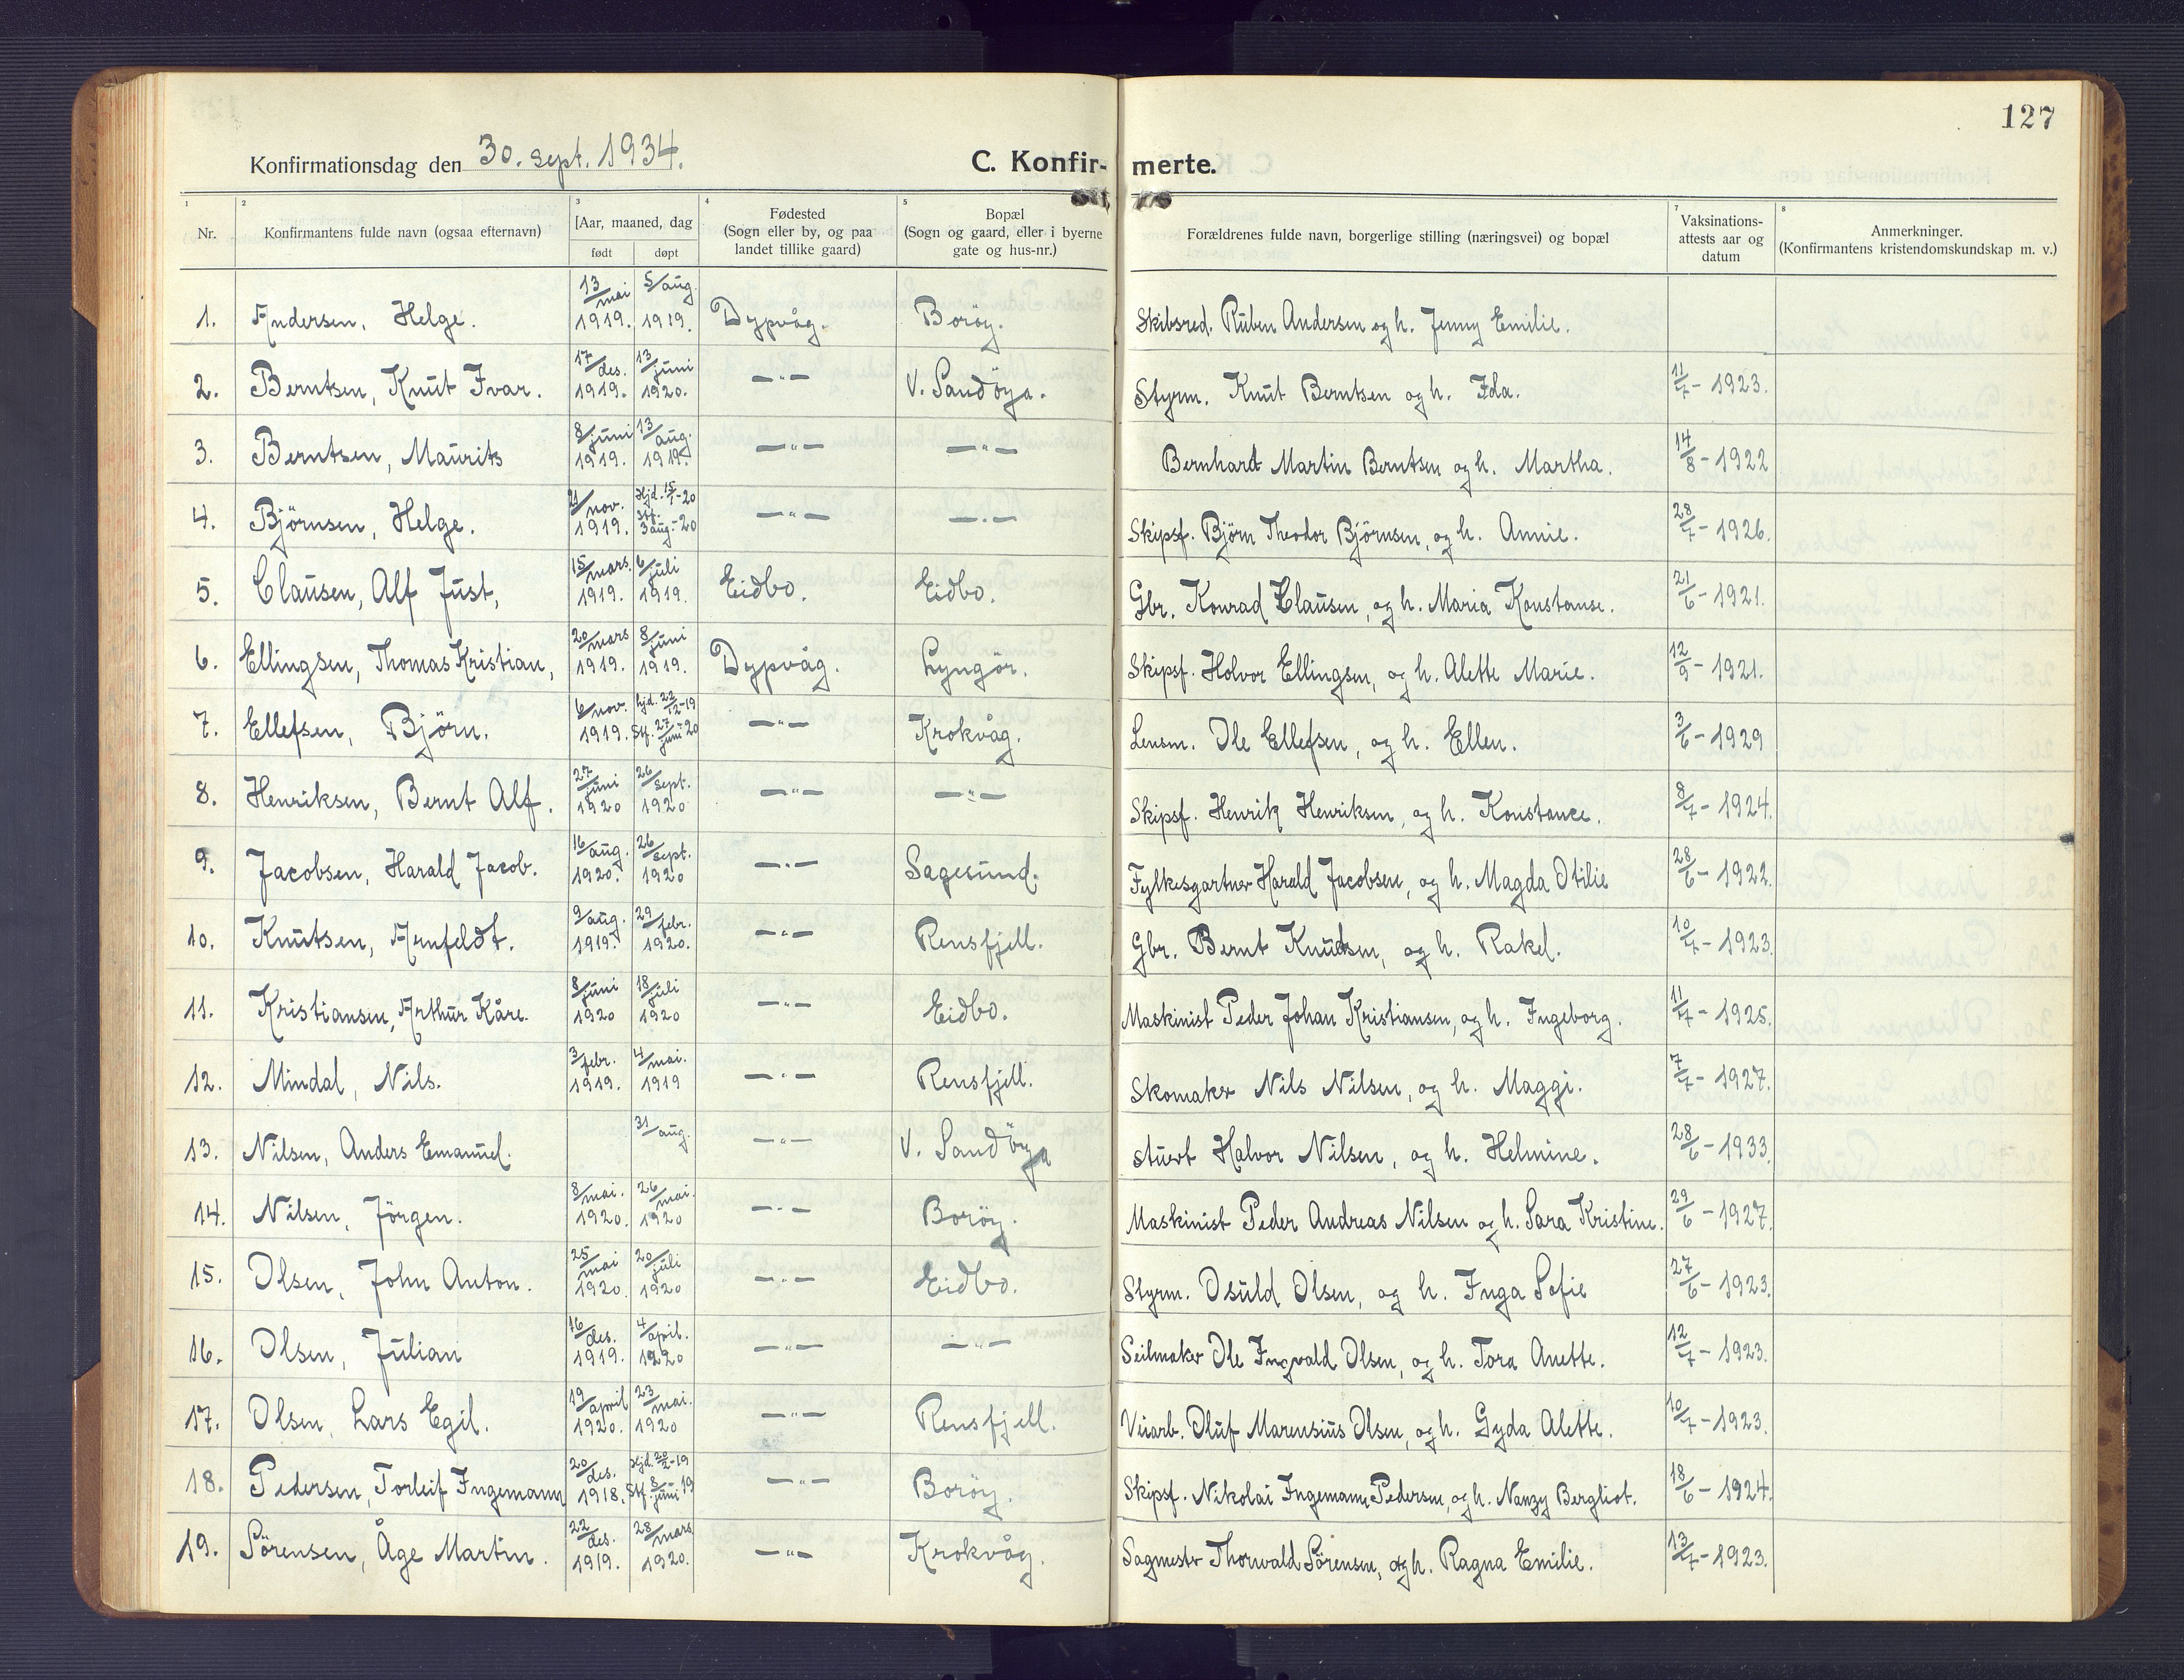 127
Konfirmationsdag den 30. sept. 1934.
C. Konfir- merte.
1 2 3 4 5 7 8
Nr. Konfirmantens fulde navn (ogsaa efternavn) [Aar, maaned, dag født døpt Fødested (Sogn eller by, og paa landet tillike gaard) Bopæl (Sogn og gaard, eller i byerne gate og hus-nr.) Forældrenes fulde navn, borgerlige stilling (næringsvei) og bopæl Vaksinations-attests aar og datum Anmerkninger. (Konfirmantens kristendomskundskap m. v.)
1. Andersen, Helge. 13/mai 1919. 5/aug. 1919. Dypvåg. Borøy. Skibsred. Ruben Andersen og h. Jenny Emilie.
2. Berntsen, Knut Ivar. 17/des. 1919. 13/juni 1920. —"— V. Sandöya. Styrm. Knut Berntsen og h. Ida. 11/7 - 1923.
3. Berntsen, Maurits 8/juni 1919. 13/aug. 1919. —"— —"— Bernhard Martin Berntsen og h. Martha. 14/8 - 1922
4. Björnsen, Helge. 21/nov. 1919. Hjd. 15/1-20 Stf. 3 aug.-20 —"— —"— Skipsf. Björn Theodor Björnsen, og h. Annie. 28/7 - 1926.
5. Clausen, Alf Just, 15/mars. 1919. 6/juli 1919. Eidbo. Eidbo. Gbr. Konrad Clausen, og h. Maria Konstanse. 21/6 - 1921.
6. Ellingsen, Thomas Kristian, 20/mars 1919. 8/juni 1919. Dypvåg. Lyngör. Skipsf. Holvor Ellingsen, og h. Alette Marie. 12/9 - 1921.
7. Ellefsen, Björn. 6/nov. 1919. hjd. 22/12-19 Stf. 27/juni-20 —"— Krokvåg. Lensm. Ole Ellefsen, og h. Ellen. 3/6 - 1929
8. Henriksen, Bernt Alf. 27/juni 1920 26/sept. 1920 —"— —"— Skipsf. Henrik Henriksen, og h. Konstance. 8/7 - 1924.
9. Jacobsen, Harald Jacob. 16/aug. 1920. 26/sept. 1920 —"— Sagesund. Fylkesgartner Harald Jacobsen, og h. Magda Otilie 28/6 - 1922.
10. Knutsen, Arnfeldt. 9/aug. 1919. 29/febr. 1920. —"— Rensfjell. Gbr. Bernt Knudsen, og h. Rakel. 10/7 - 1923.
11. Kristiansen, Arthur Kåre. 8/juni 1920 18/juli 1920 —"— Eidbo. Maskinist Peder Johan Kristiansen, og h. Ingeborg. 11/7 - 1925.
12. Mindal, Nils. 3/febr. 1919. 4/mai. 1919 —"— Rensfjell. Skomaker Nils Nilsen, og h. Maggi. 7/7 - 1927.
13. Nilsen, Anders Emanuel. 31/aug. —"— V. Sandöya stuert Halvor Nilsen, og h. Helmine. 28/6 - 1933.
14. Nilsen, Jörgen. 8/mai. 1920. 26/mai. 1920 —"— Boröy. Maskinist Peder Andreas Nilsen og h. Sara Kristine. 29/6 - 1927.
15. Olsen, John Anton. 25/mai 1920. 20/juli 1920 —"— Eidbo. Styrm. Osuld Olsen, og h. Inga Sofie 27/6 - 1923.
16. Olsen, Julian 16/des. 1919. 4/april. 1920 —"— —"— Seilmaker Ole Ingvald Olsen, og h. Tora Anette. 12/7 - 1923.
17. Olsen, Lars Egil. 19/april 1920. 23/mai. 1920 —"— Rensfjell. Veiarb. Oluf Marensius Olsen, og h. Gyda Alette. 10/7 - 1923.
18. Pedersen, Torleif Ingemann 20/des. 1918. Hjd. 22/2-19 Stf. 8/juni 19 —"— Boröy. Skipsf. Nikolai Ingemann Pedersen, og h. Nanzy Bergliot. 18/6 - 1924.
19. Sörensen, Åge Martin. 22/des. 1919. 28/mars. 1920. —"— Krokvåg. Sagmester Thorvald Sörensen, og h. Ragna Emilie. 13/7 - 1923.